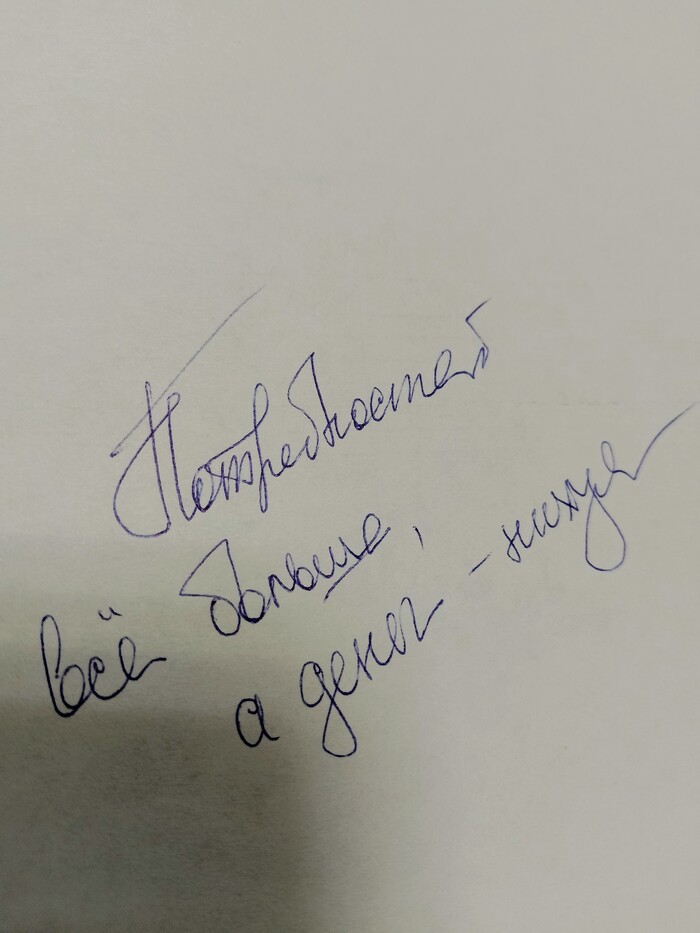 Потребностей
всё больше,
а денег - нихуя